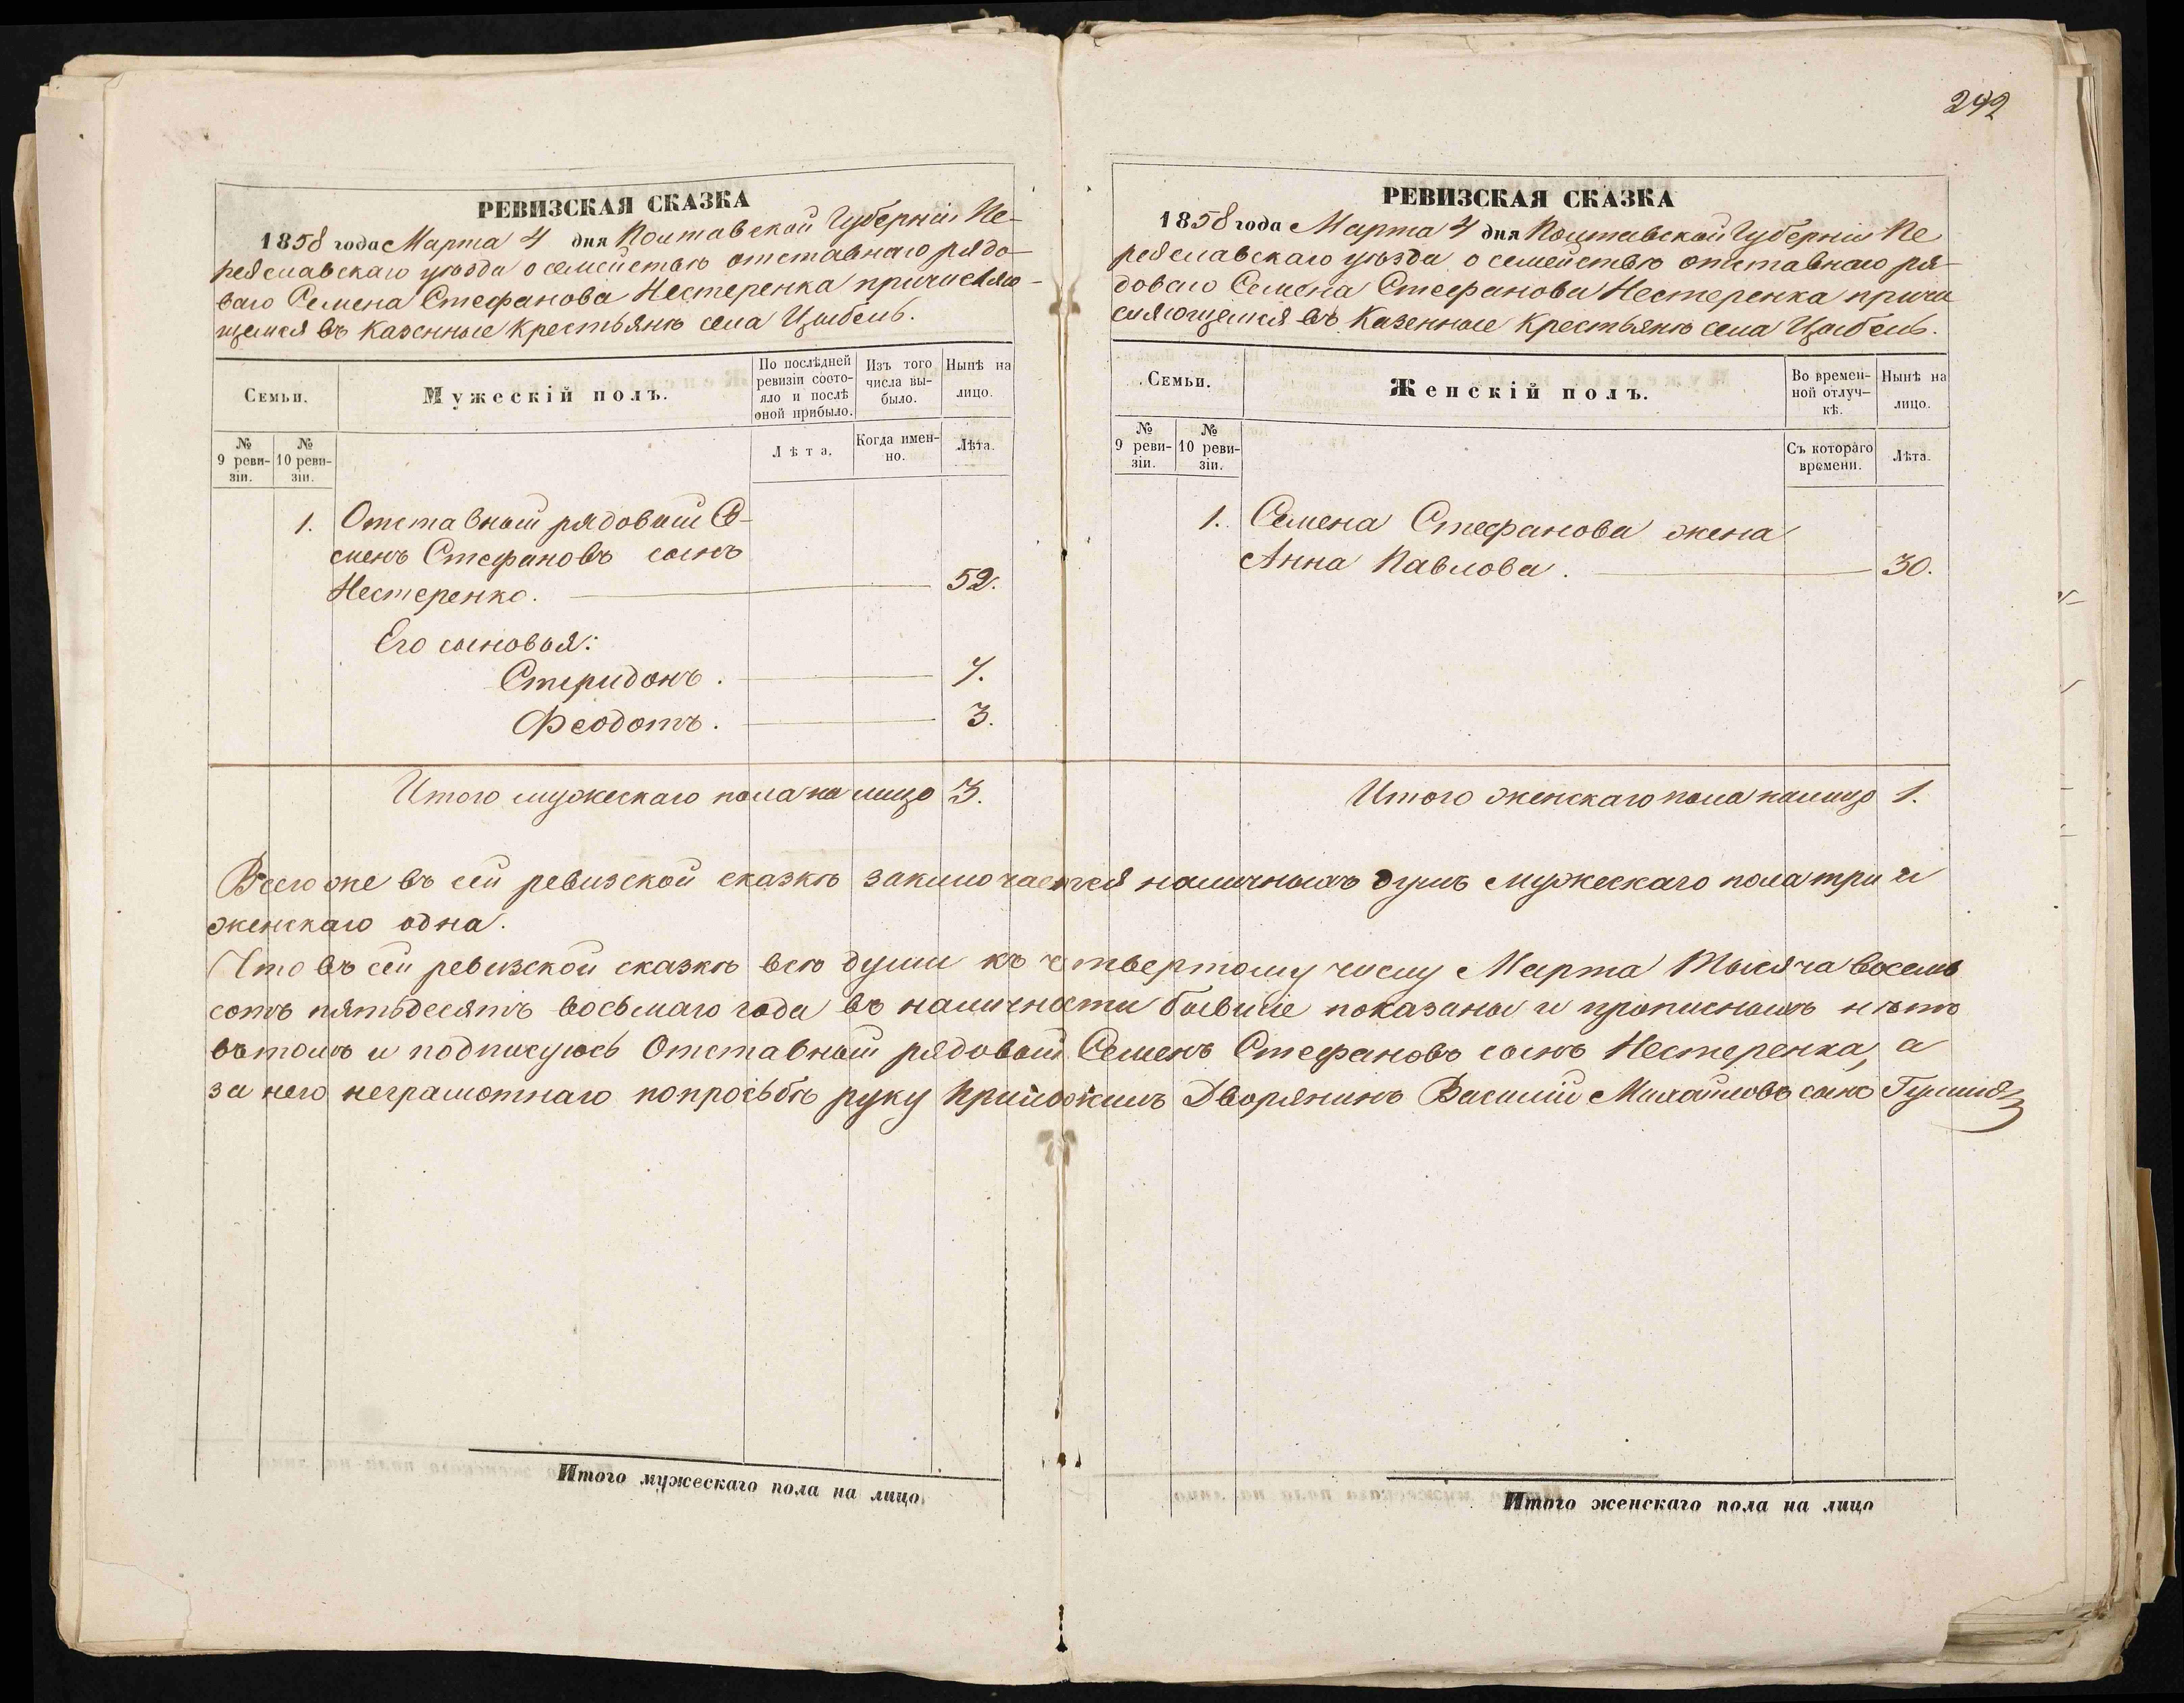 292
РЕВИЗСКАЯ СКАЗКА
1858 года Марта 4 дня Полтавской Губерніи Пе-
реяславскаго уѣзда о семействѣ отставнаго рядо-
ваго Семена Стефанова Нестеренка причисляю-
щемся въ казенные крестьянѣ села Цыбель.
Семьи.
Мужескій полъ.
По послѣдней
ревизіи состо-
яло и послѣ
оной прибыло.
Изъ того
числа вы-
было.
Нынѣ на
лицо.
№
9 реви-
зіи.
№
10 реви-
зіи.
Лѣта.
Когда имен-
но.
Лѣта.
1. Отставный рядовый Се-
менъ Стефановъ сынъ
Нестеренко. 52.
Его сыновья:
Спиридонъ. 7.
Феодотъ. 3.
Итого мужескаго пола на лицо 3.
РЕВИЗСКАЯ СКАЗКА
1858 года Марта 4 дня Полтавской Губерніи Пе
реяславскаго уѣзда о семействѣ отставнаго ря-
доваго Семена Стефанова Нестеренка причи
сляющемся въ Казенные крестьянѣ села Цыбель.
Семьи.
Женскій полъ.
Во времен-
ной отлуч-
кѣ.
Нынѣ на
лицо.
№
9 реви-
зіи.
№
10 реви-
зіи.
Съ котораго
времени.
Лѣта.
1. Семена Стефанова жена
Анна Павлова. 30.
Итого женскаго пола налицо 1.
Всего же въ сей ревизской сказкѣ заключается наличныхъ душъ мужескаго пола три и
женскаго одна.
Что въ сей ревизской сказкѣ всѣ души къ четвертому числу Марта тысяча восемь
сотъ пятьдесятъ восьмаго года въ наличности бывшіе показаны и прописныхъ нѣтъ
въ томъ и подписуюсь Отставный рядовый Семенъ Стефановъ сынъ Нестеренка, а
за него неграмотнаго по просьбѣ руку приложилъ Дворянинъ Василій Михайловъ сынъ
Итого мужескаго пола на лицо
Итого женскаго пола на лицо